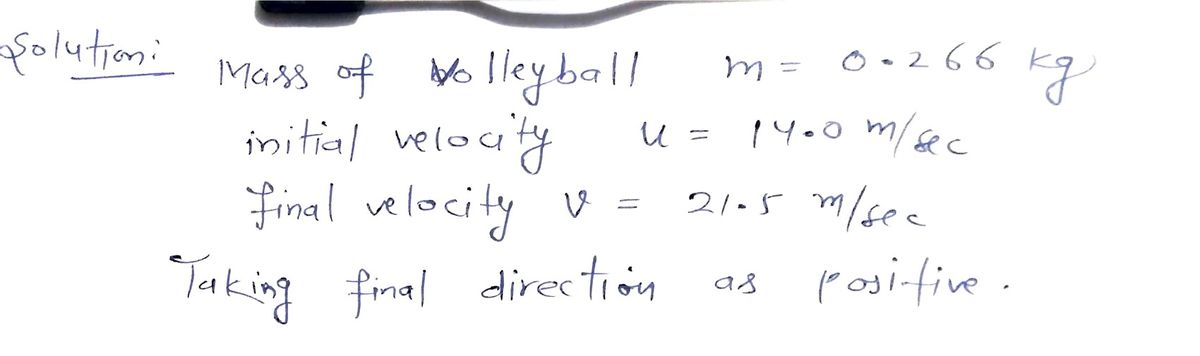 Solution:
Mass of Volleyball m = 0.266 kg
initial velocity u = 14.0 m/sec
final velocity v = 21.5 m/sec
Taking final direction as positive.